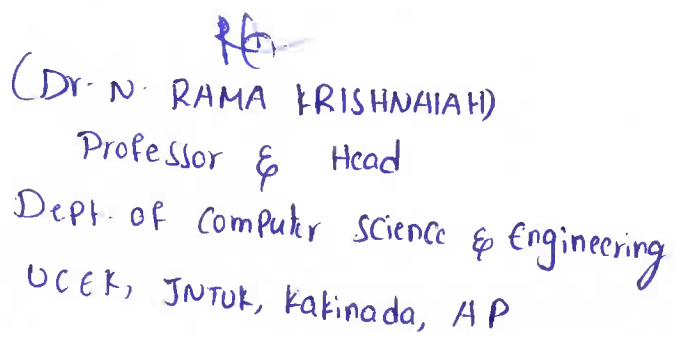 (Dr. N. RAMA KRISHNAIAH)
Professor & Head
Dept. of Computer Science & Engineering
UCEK, JNTUK, Kakinada, AP